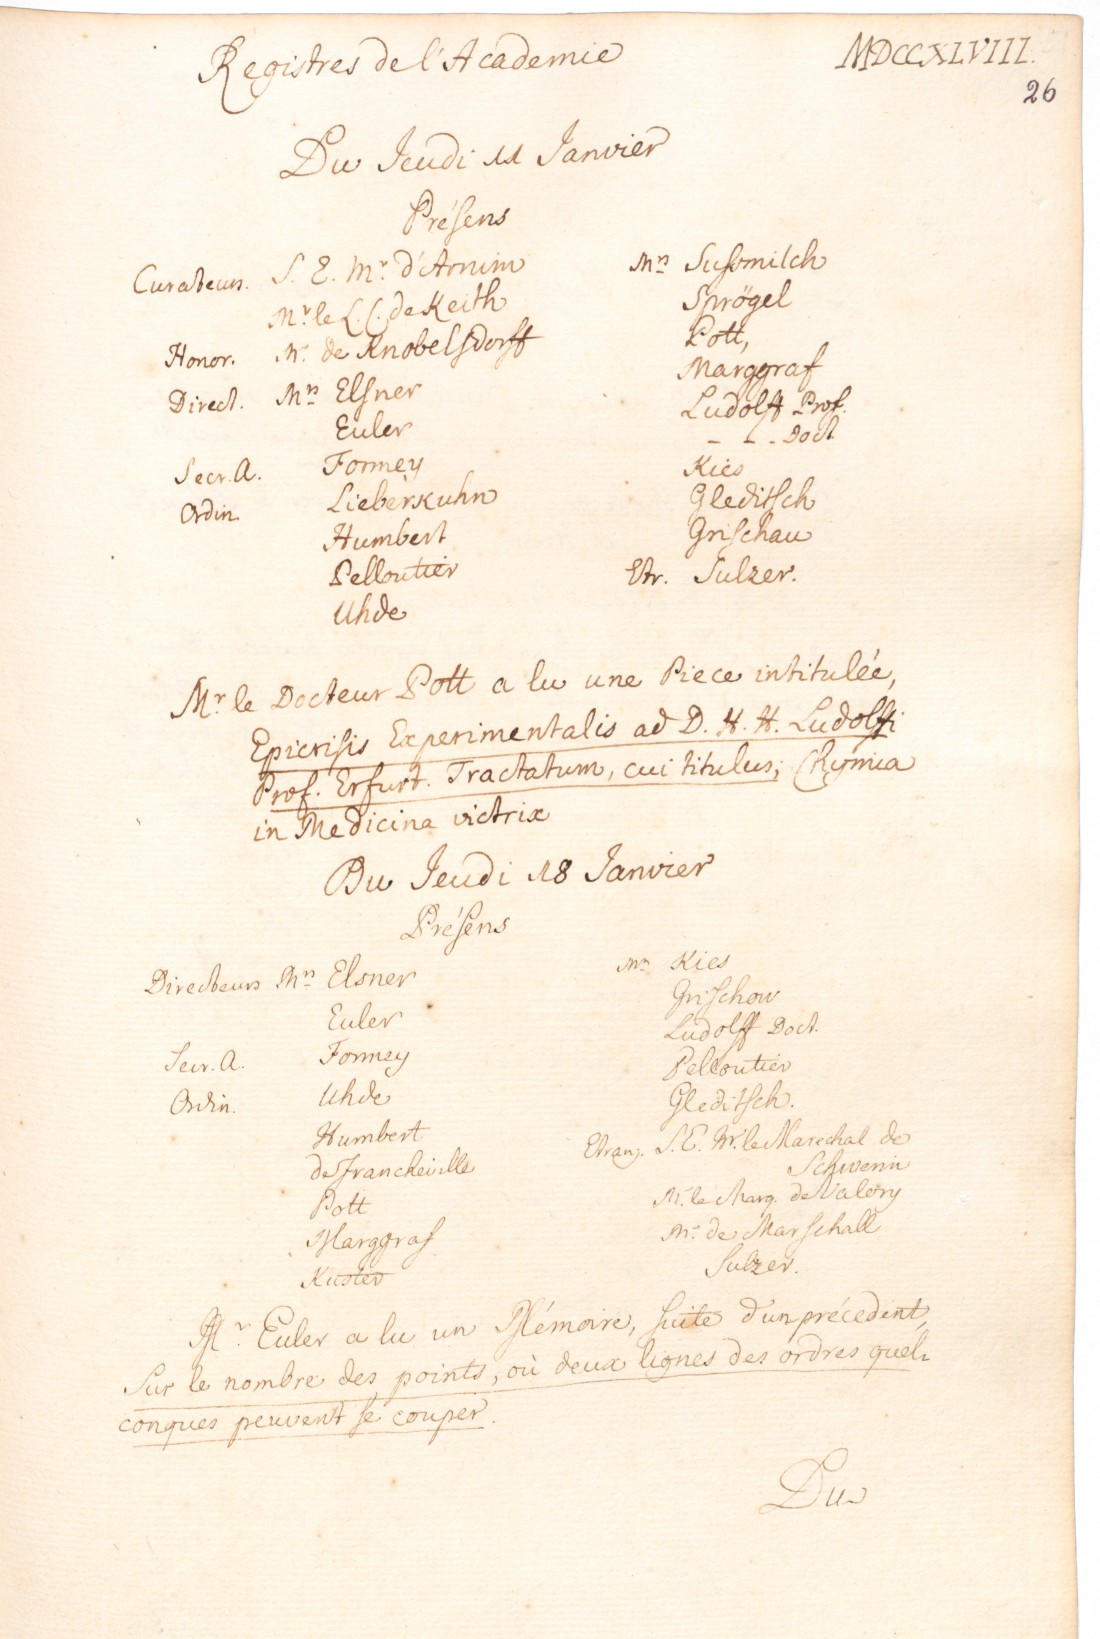 Registres de l'Academie
MDCCXLVIII.
26
Du Jeudi 11 Janvier
Présens
Curateurs. S. E. Mr. d'Arnim
Mr. le L. C. de Keith
Honor. Mr. de Knobelsdorff
Direct. Mrs Elsner
Euler
Secr. A. Formey
Ordin. Lieberkuhn
Humbert
Pelloutier
Uhde
Mrs Susmilch
Sprögel
Pott,
Marggraf
Ludolff Prof.
- - - Doct.
Kies
Gleditsch
Grischau
Etr. Sulzer.
Mr. le Docteur Pott a lu une Piece intitulée,
Epicrisis Experimentalis ad D. H. H. Ludolffi
Prof. Erfurt. Tractatum, cui titulus; Chymia
in Medicina victrix
Du Jeudi 18 Janvier
Présens
Directeurs Mrs Elsner
Euler
Secr. A. Formey
Ordin. Uhde
Humbert
de Francheville
Pott
Marggraf
Kuster
Mrs Kies
Grischow
Ludolff Doct.
Pelloutier
Gleditsch.
Etrang. S. E. Mr. le Marechal de
Schwerin
Mr. le Marq. de Valory
Mr. de Marschall
Sulzer.
Mr. Euler a lu un Mémoire, suite d'un précedent,
Sur le nombre des points, où deux lignes des ordres quel-
conques peuvent se couper.
Du